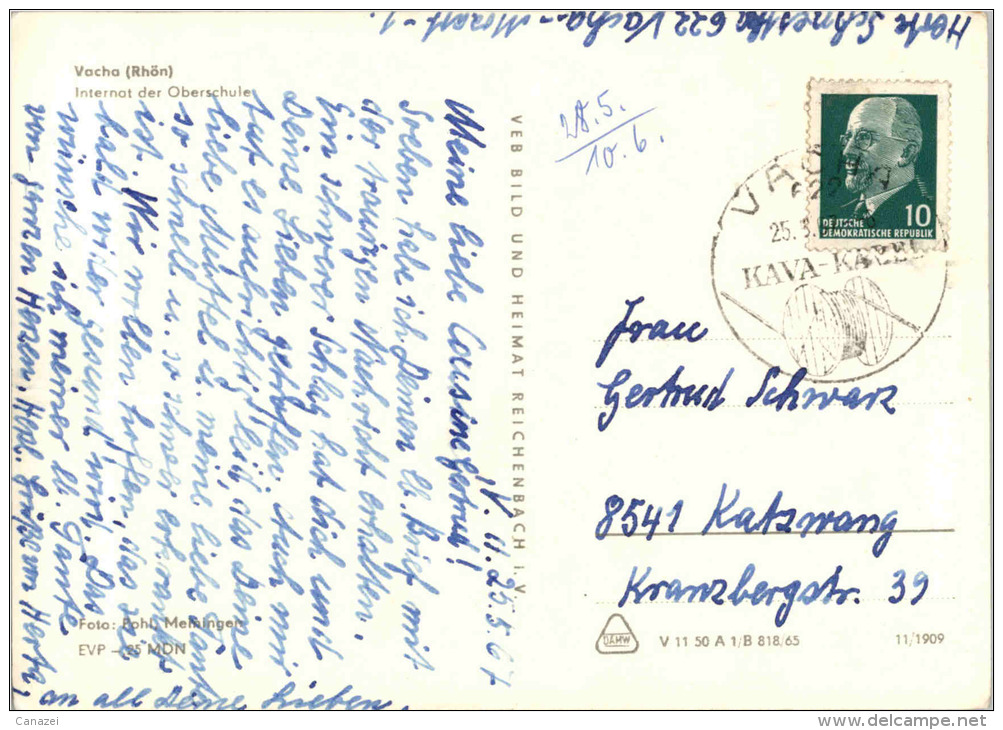 Vacha (Rhön)
Internat der Oberschule
622 Vacha - Mozart - 1.
V. 11. 25.5.67
Meine liebe Cousine Gertrud!
Soeben habe ich Deinen lb. Brief mit
der traurigen Nachricht erhalten,
Ein schwerer Schlag hat dich und
Deine Lieben getroffen. Auch mir
tut es aufrichtig leid, das Deine
liebe Mutter u. meine liebe Tante
so schnell u. so schwer erkrankt
ist. Wir wollen hoffen, das sie
bald wieder gesund wird. Das
wünsche ich meiner lb. Tante
von ganzem Herzen. Herzl. Grüße von Herta,
an all Deine Lieben.
Foto: Pohl, Meiningen
EVP – 25 MDN
VEB BILD UND HEIMAT REICHENBACH I. V.
28.5.
10.6.
DEUTSCHE
DEMOKRATISCHE REPUBLIK
10
VACHA
25.
KAVA-KABEL
Frau
Gertrud Schwarz
8541 Katzwang
Kranzbergstr. 39
DAHW
V 11 50 A 1/B 818/65
11/1909
Canazei
delcampe.net